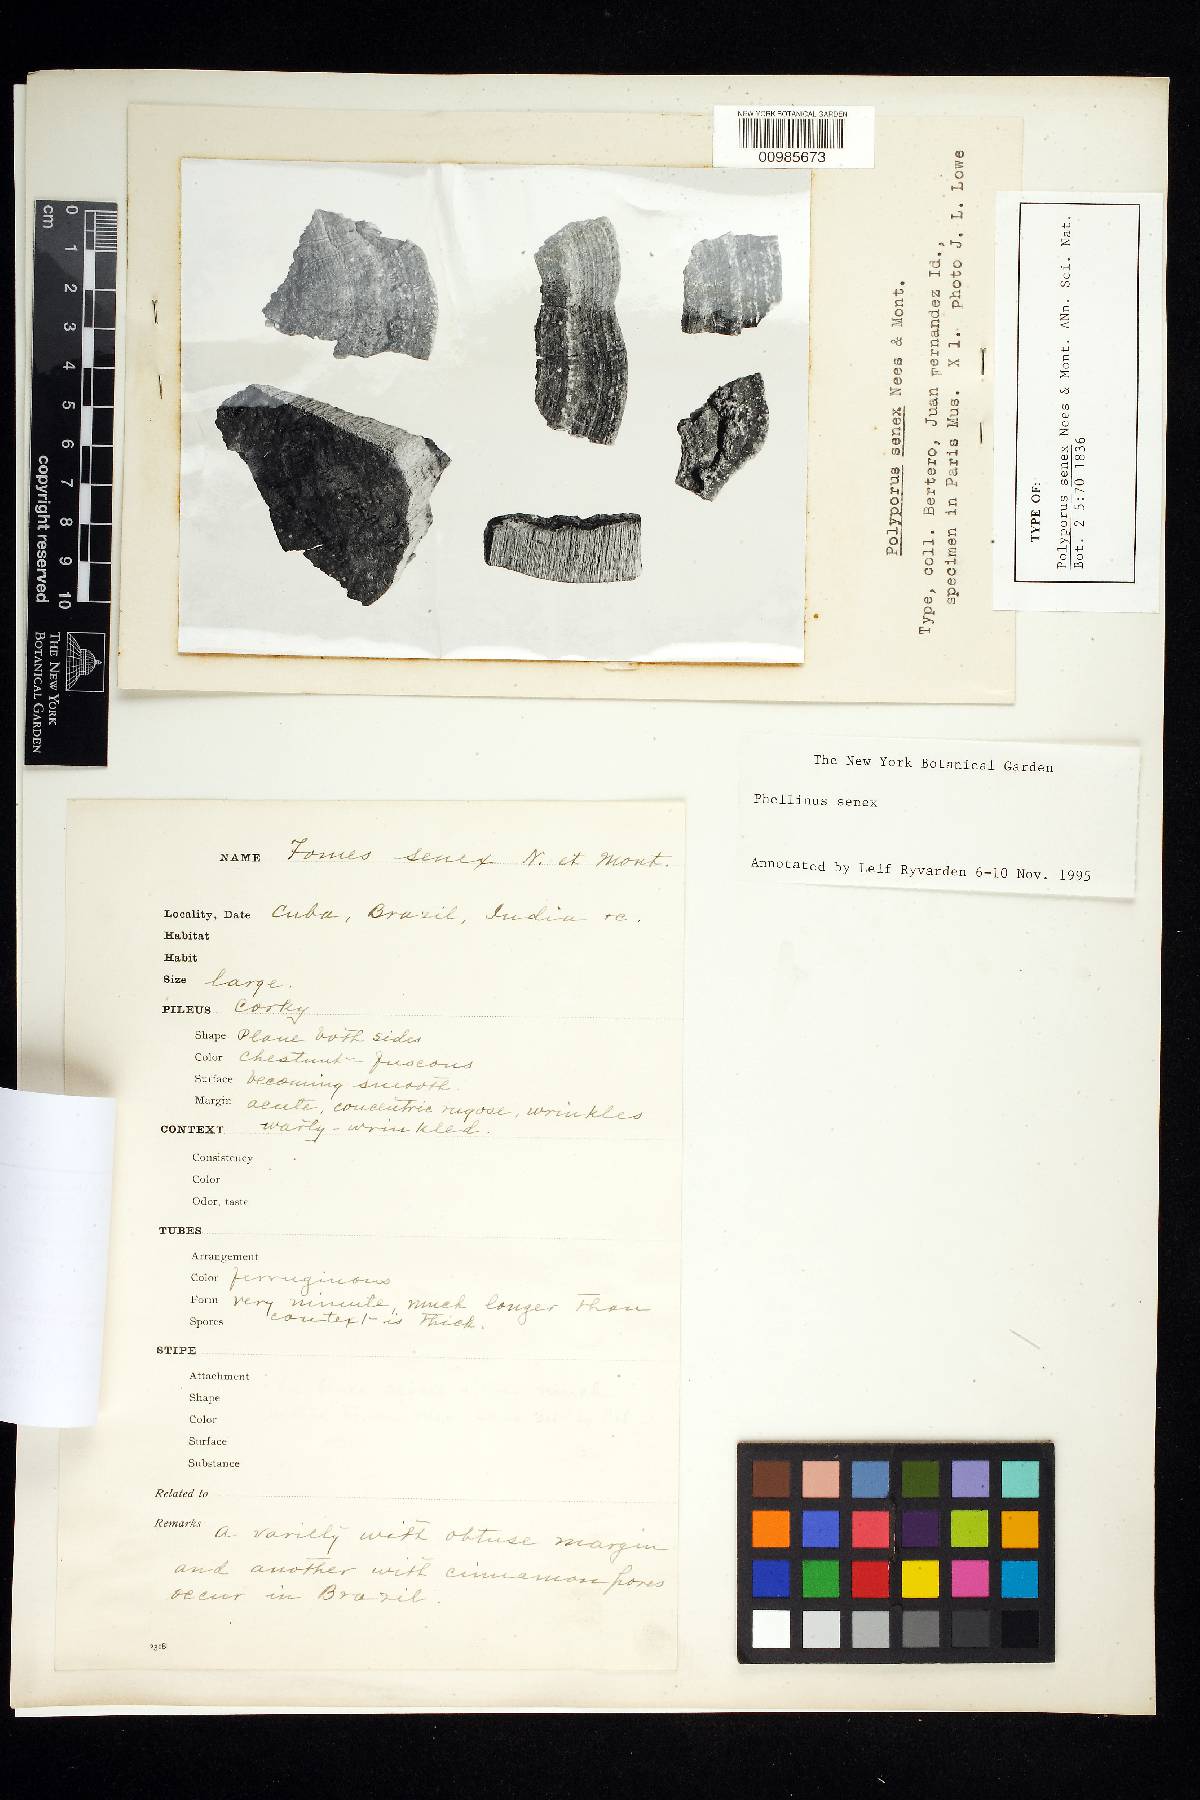 NEW YORK BOTANICAL GARDEN
00985673
Polyporus senex Nees & Mont.
Type, coll. Bertero, Juan Fernandez Id.,
specimen in Paris Mus. X 1. Photo J. L. Lowe
TYPE OF:
Polyporus senex Nees & Mont. ANn. Sci. Nat.
Bot. 2 5:70 1836
cm
0 1 2 3 4 5 6 7 8 9 10
copyright reserved
THE NEW YORK
BOTANICAL GARDEN
The New York Botanical Garden
Phellinus senex
Annotated by Leif Ryvarden 6-10 Nov. 1995
NAME Fomes senex N. et Mont.
Locality, Date Cuba, Brazil, India &c.
Habitat
Habit
Size large.
PILEUS Corky
Shape Plane both sides
Color Chestnut-fuscous
Surface becoming smooth.
Margin acute, concentric rugose, wrinkles
CONTEXT warty-wrinkled.
Consistency
Color
Odor, taste
TUBES
Arrangement
Color ferruginous
Form very minute, much longer than
Spores context is thick.
STIPE
Attachment
Shape
Color
Surface
Substance
Related to
Remarks A variety with obtuse margin
and another with cinnamon pores
occur in Brazil.
2318